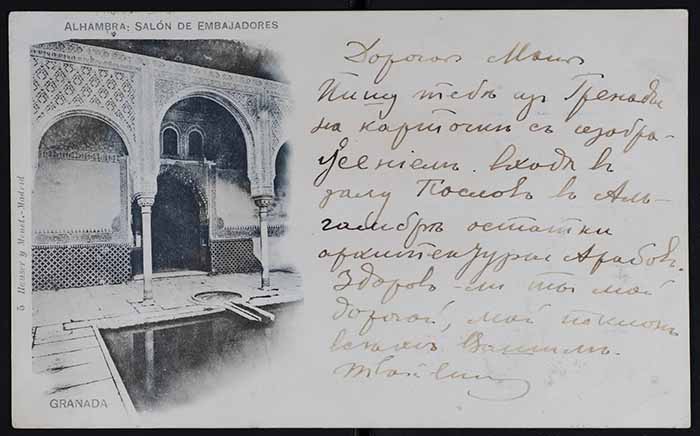 ALHAMBRA: SALÓN DE EMBAJADORES
Дорогой
Пишу тебѣ из Гренады
на карточкѣ съ изобра-
женіемъ входа въ
залу Пословъ в Аль-
гамбрѣ остатки
архитектуры Арабовъ.
Здоровъ-ли ты мой
дорогой, мой поклонъ
всѣмъ Вашимъ.
Твой
5 Hauser y Menet.-Madrid
GRANADA